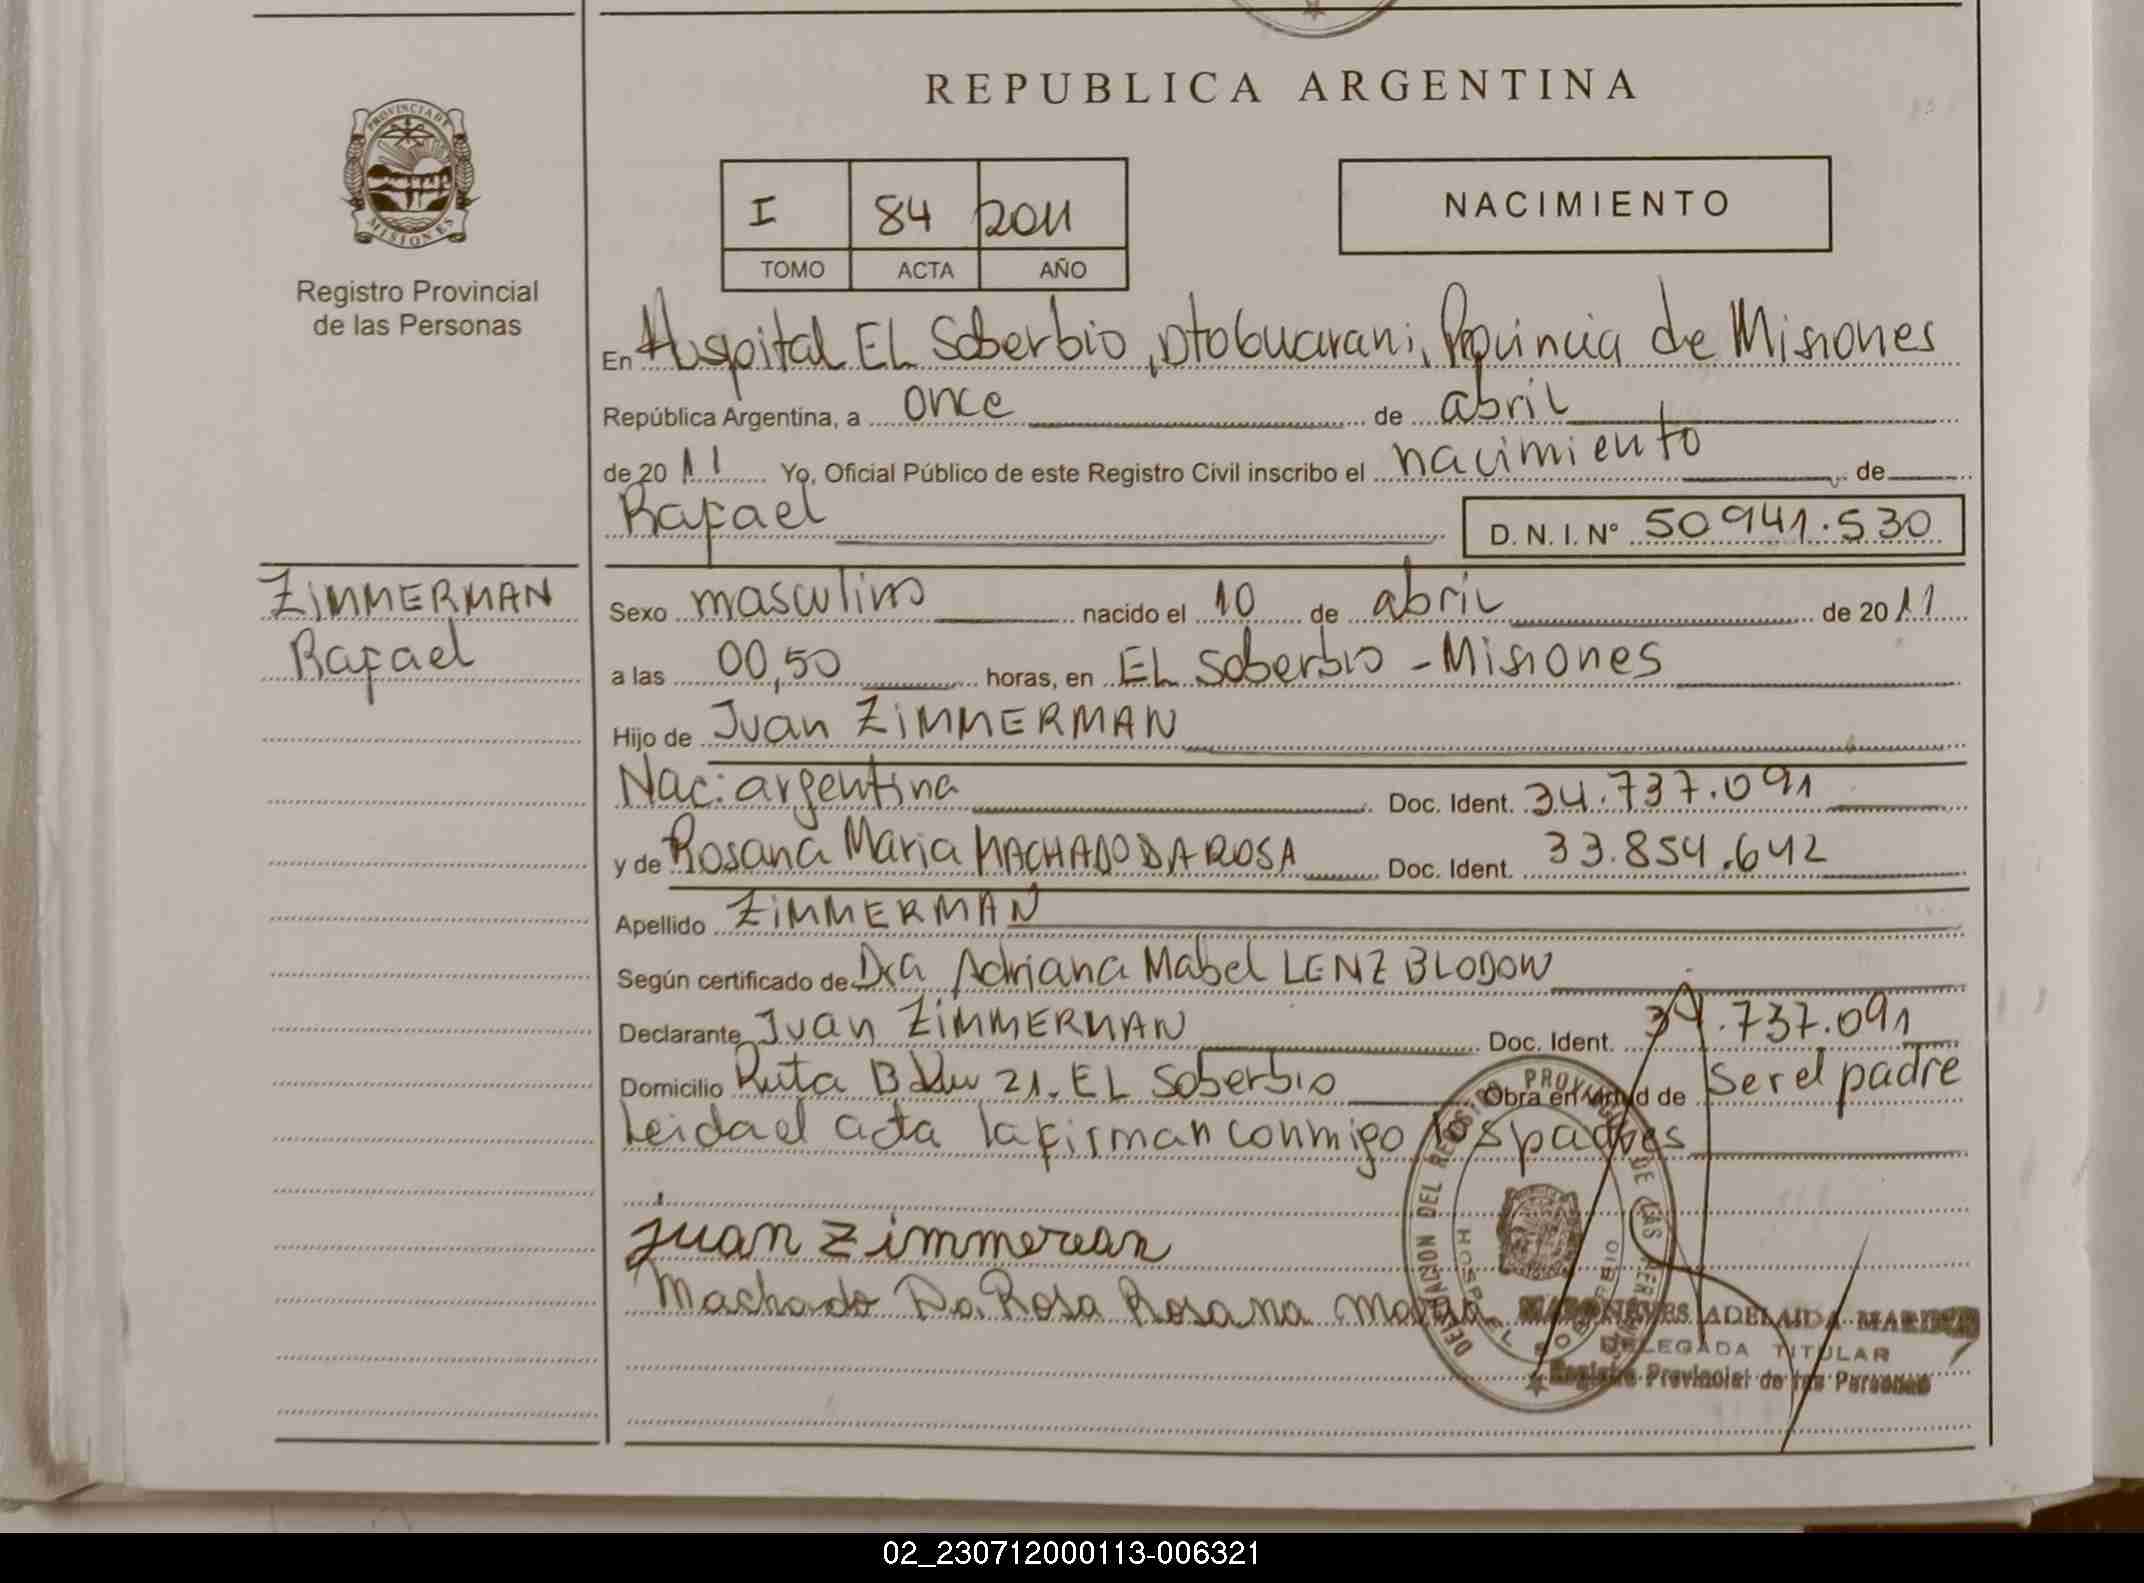 REPUBLICA ARGENTINA
PROVINCIA DE MISIONES
Registro Provincial
de las Personas
I 84 2011
TOMO ACTA AÑO
NACIMIENTO
En Hospital EL Soberbio, Dto Guarani, Provincia de Misiones
República Argentina, a once de abril
de 20 11 Yo, Oficial Público de este Registro Civil inscribo el nacimiento de
Rafael D. N. I. Nº 50941.530
ZIMMERMAN
Rafael
Sexo masculino nacido el 10 de abril de 20 11
a las 00,50 horas, en EL Soberbio - Misiones
Hijo de Juan ZIMMERMAN
Nac: argentina Doc. Ident. 34.737.091
y de Rosana Maria MACHADO DA ROSA Doc. Ident. 33.854.642
Apellido ZIMMERMAN
Según certificado de Dra Adriana Mabel LENZ BLODOW
Declarante Juan ZIMMERMAN Doc. Ident. 34.737.091
Domicilio Ruta 13 Km 21. EL Soberbio Obra en virtud de Ser el padre
Leida el acta la firman conmigo los padres
juan zimmerean
Machado Da Rosa Rosana Maria
DELEGACION DEL REGISTRO PROVINCIAL DE LAS PERSONAS
HOSPITAL EL SOBERBIO
NIEVES ADELAIDA
DELEGADA TITULAR
Registro Provincial de las Personas
02_230712000113-006321